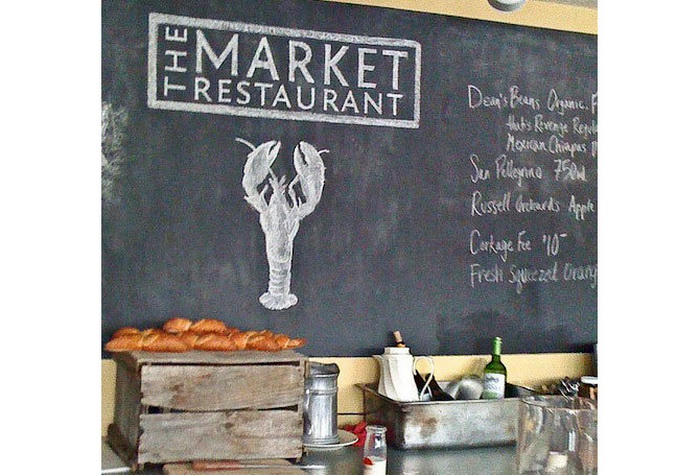 THE MARKET
RESTAURANT
Dean's Beans Organic. F
that's Revenge Regula
Mexican Chiapas
San Pellegrino 750ml
Russell Orchards Apple
Corkage Fee $10-
Fresh Squeezed Orang